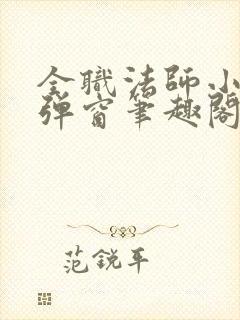 全職法師小
彈窗筆趣閣
范銳平